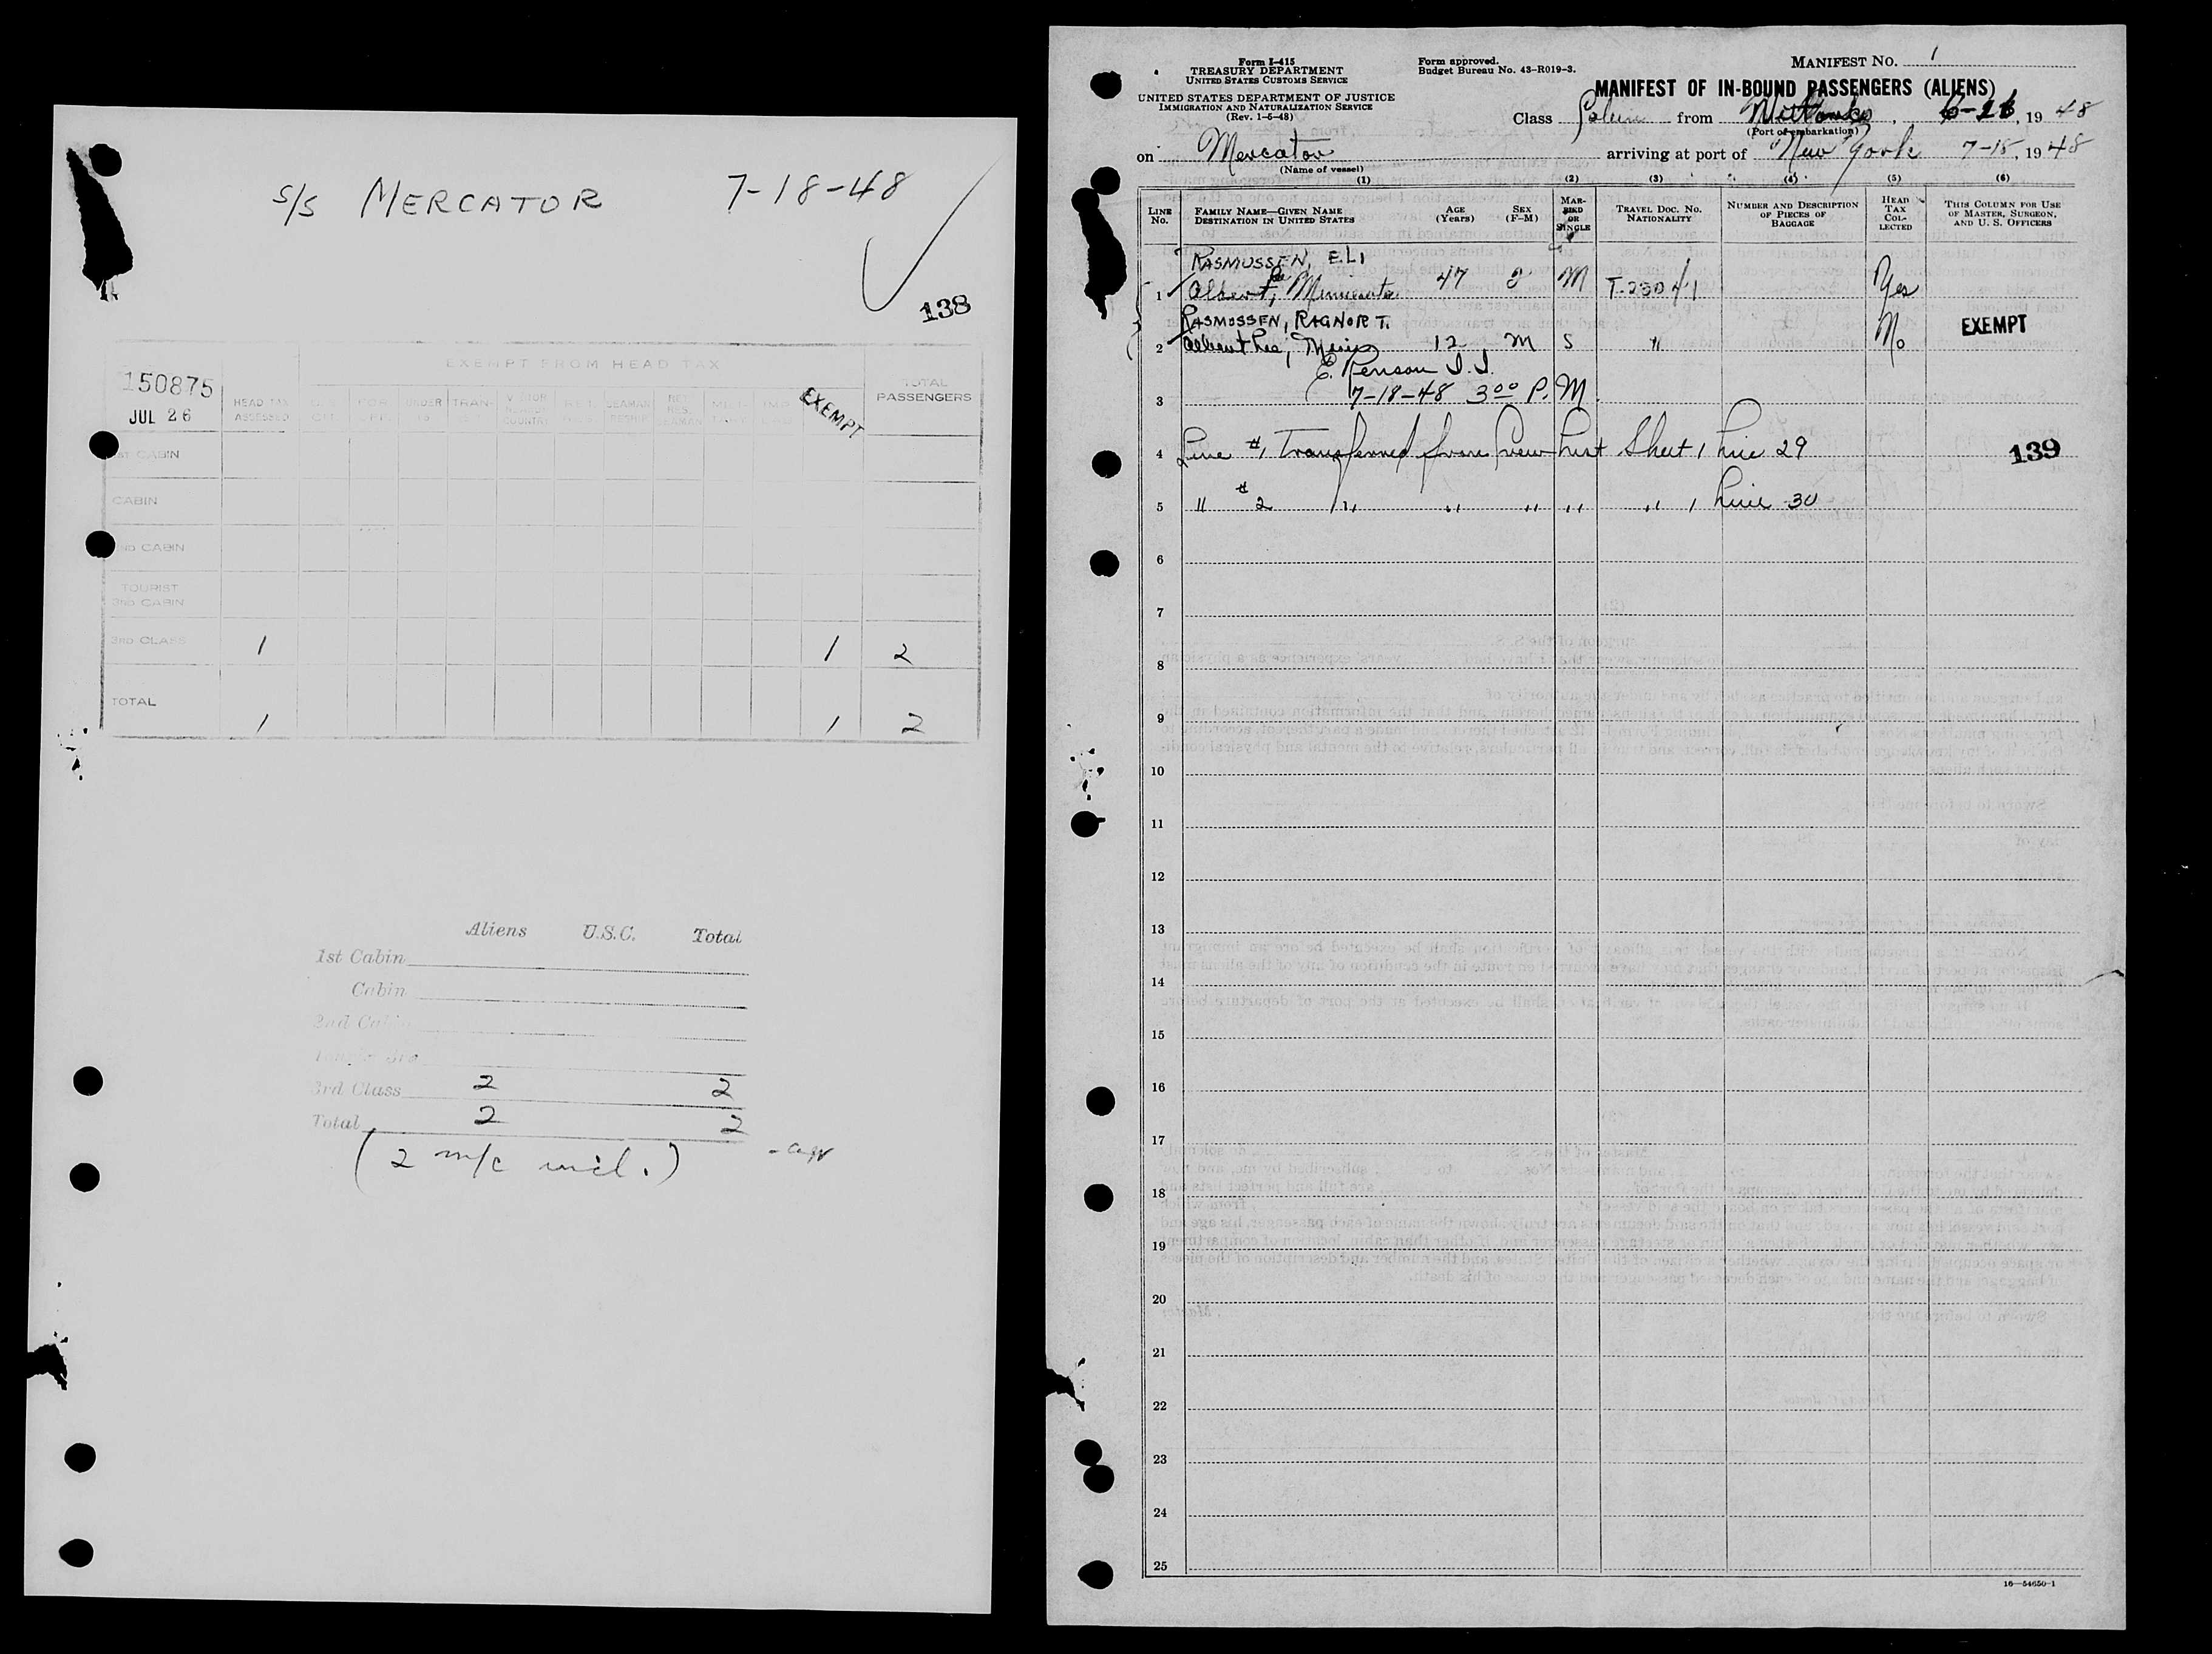 S/S MERCATOR 7-18-48
138
EXEMPT FROM HEAD TAX
150875
JUL 26
HEAD TAX ASSESSED
UNDER 16
TRAN-
EXEMPT
TOTAL PASSENGERS
1st CABIN
CABIN
2nd CABIN
TOURIST
3RD CABIN
3RD CLASS 1 1 2
TOTAL 1 1 2
Aliens U.S.C. Total
1st Cabin
Cabin
2nd Cabin
3rd Class 2 2
Total 2 2
(2 m/c incl.)
Form I-415
TREASURY DEPARTMENT
UNITED STATES CUSTOMS SERVICE
UNITED STATES DEPARTMENT OF JUSTICE
IMMIGRATION AND NATURALIZATION SERVICE
(Rev. 1-5-48)
Form approved.
Budget Bureau No. 43-R019-3.
MANIFEST NO. 1
MANIFEST OF IN-BOUND PASSENGERS (ALIENS)
Class from , 19 48
(Port of embarkation)
on Mercator arriving at port of New York 7-18, 19 48
(Name of vessel)
(1) (2) (3) (4) (5) (6)
LINE NO.
FAMILY NAME—GIVEN NAME
DESTINATION IN UNITED STATES
AGE (Years)
SEX (F-M)
MARRIED OR SINGLE
TRAVEL DOC. NO. NATIONALITY
NUMBER AND DESCRIPTION OF PIECES OF BAGGAGE
HEAD TAX COLLECTED
THIS COLUMN FOR USE OF MASTER, SURGEON, AND U. S. OFFICERS
RASMUSSEN, ELI
1 Albert Lea, Minnesota 47 M Yes
RASMUSSEN, RAGNOR T.
2 Albert Lea, Minn 12 M S " No EXEMPT
7-18-48 3 00 P.M.
3
4 Line #1 Transferred from Crew List Sheet 1 Line 29
139
5 " #2 " " " " " 1 Line 30
6
7
8
9
10
11
12
13
14
15
16
17
18
19
20
21
22
23
24
25
16—54650-1